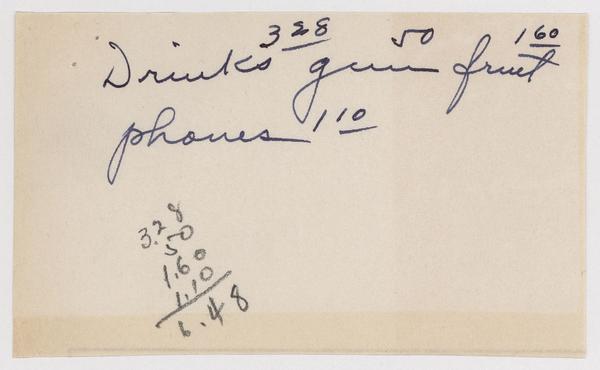 Drinks 3 28 gum 50 fruit 1 60
phones 1 10
3.28
50
1.60
1.10
6.48